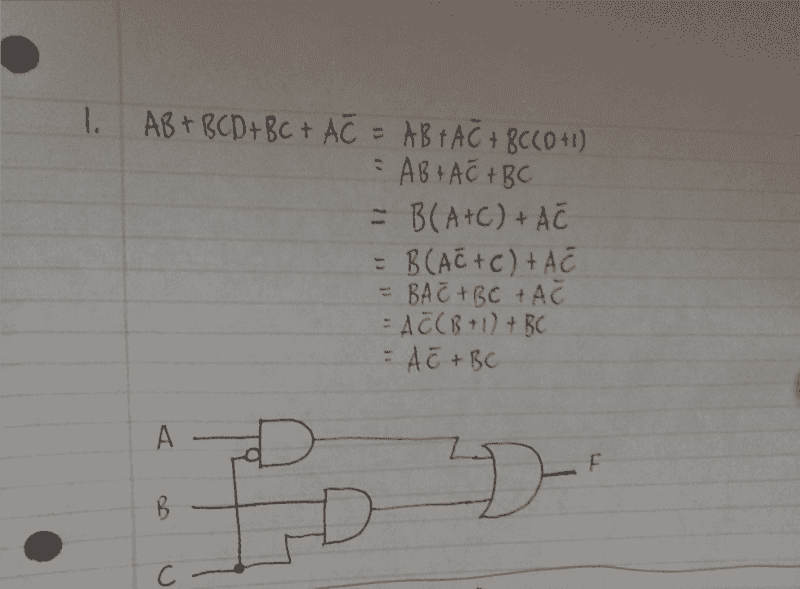 1. AB + BCD + BC + AC̄ = AB + AC̄ + BC(D+1)
= AB + AC̄ + BC
= B(A+C) + AC̄
= B(AC̄+C) + AC̄
= BAC̄ + BC + AC̄
= AC̄(B+1) + BC
= AC̄ + BC
A
F
B
C